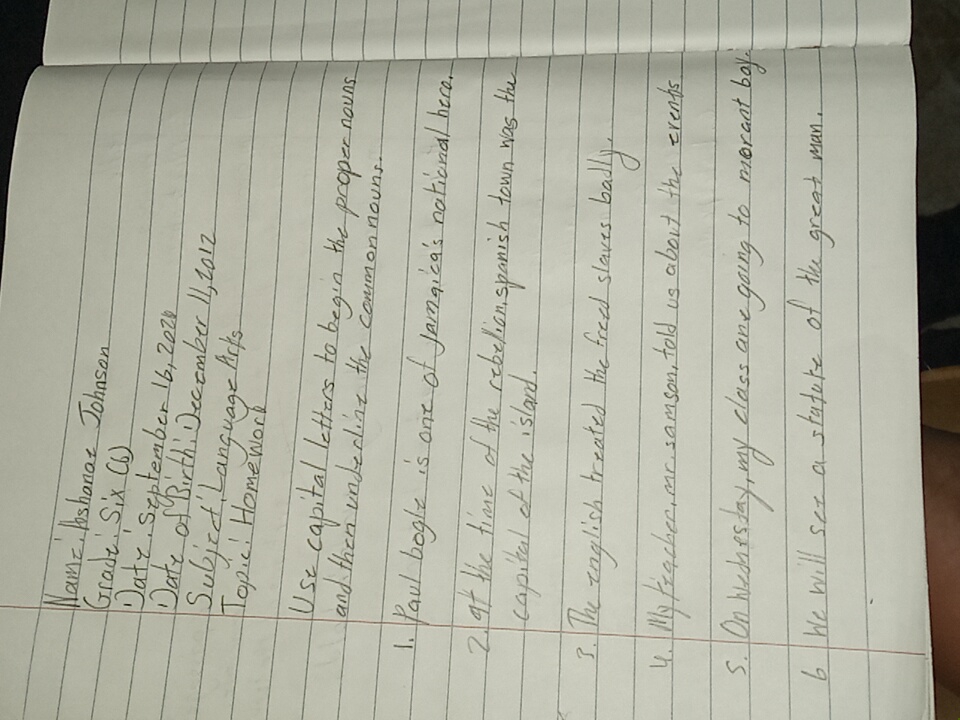 Name: Ashanae Johnson
Grade: Six (6)
Date: September 16, 2020
Date of Birth: December 11, 2012
Subject: Language Arts
Topic: Homework
Use capital letters to begin the proper nouns
and then underline the common nouns.
1. Paul bogle is one of Jamaica's national hero.
2. at the time of the rebellion, spanish town was the
capital of the island.
3. The english treated the freed slaves badly.
4. My teacher, mr. samson, told us about the events
5. On Wednesday, my class are going to morant bay.
6 We will see a statute of the great man.